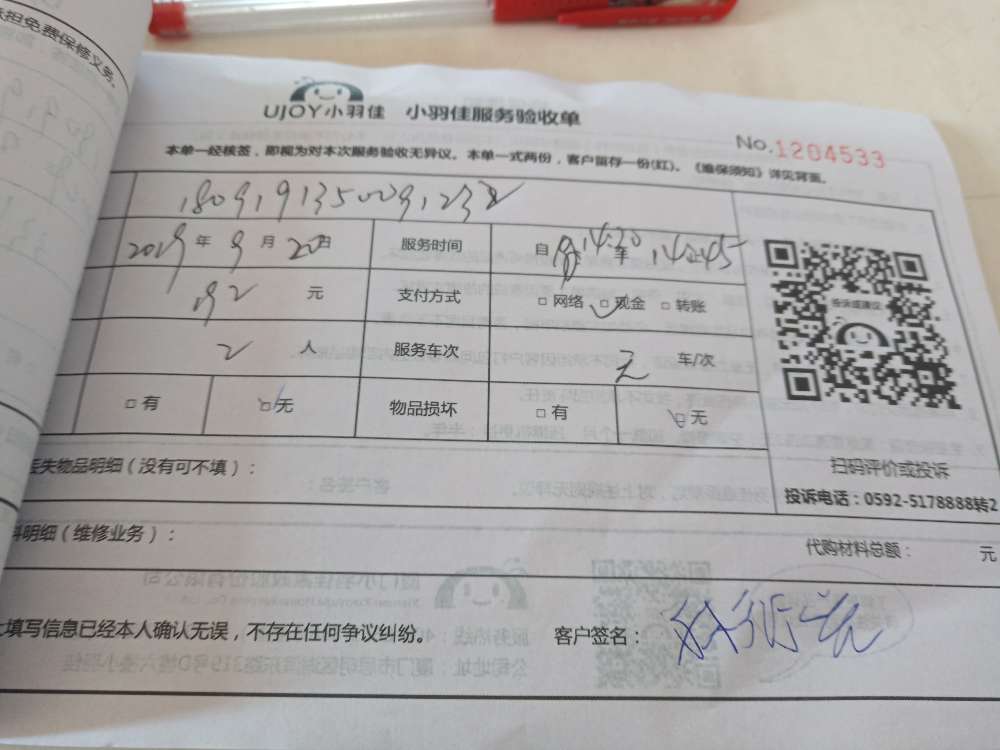 承担免费保修义务。
UJOY小羽佳 小羽佳服务验收单
No.1204533
本单一经核签，即视为对本次服务验收无异议。本单一式两份，客户留存一份(红)。《维保须知》详见背面。
2019年9月20日 服务时间 自 14:20 至 14:45
92 元 支付方式 □ 网络 □ 现金 □ 转账
2 人 服务车次 无 车/次
□ 有 □ 无 物品损坏 □ 有 □ 无
投诉或建议
扫码评价或投诉
投诉电话：0592-5178888转2
丢失物品明细（没有可不填）：
料明细（维修业务）： 代购材料总额： 元
上填写信息已经本人确认无误，不存在任何争议纠纷。 客户签名：